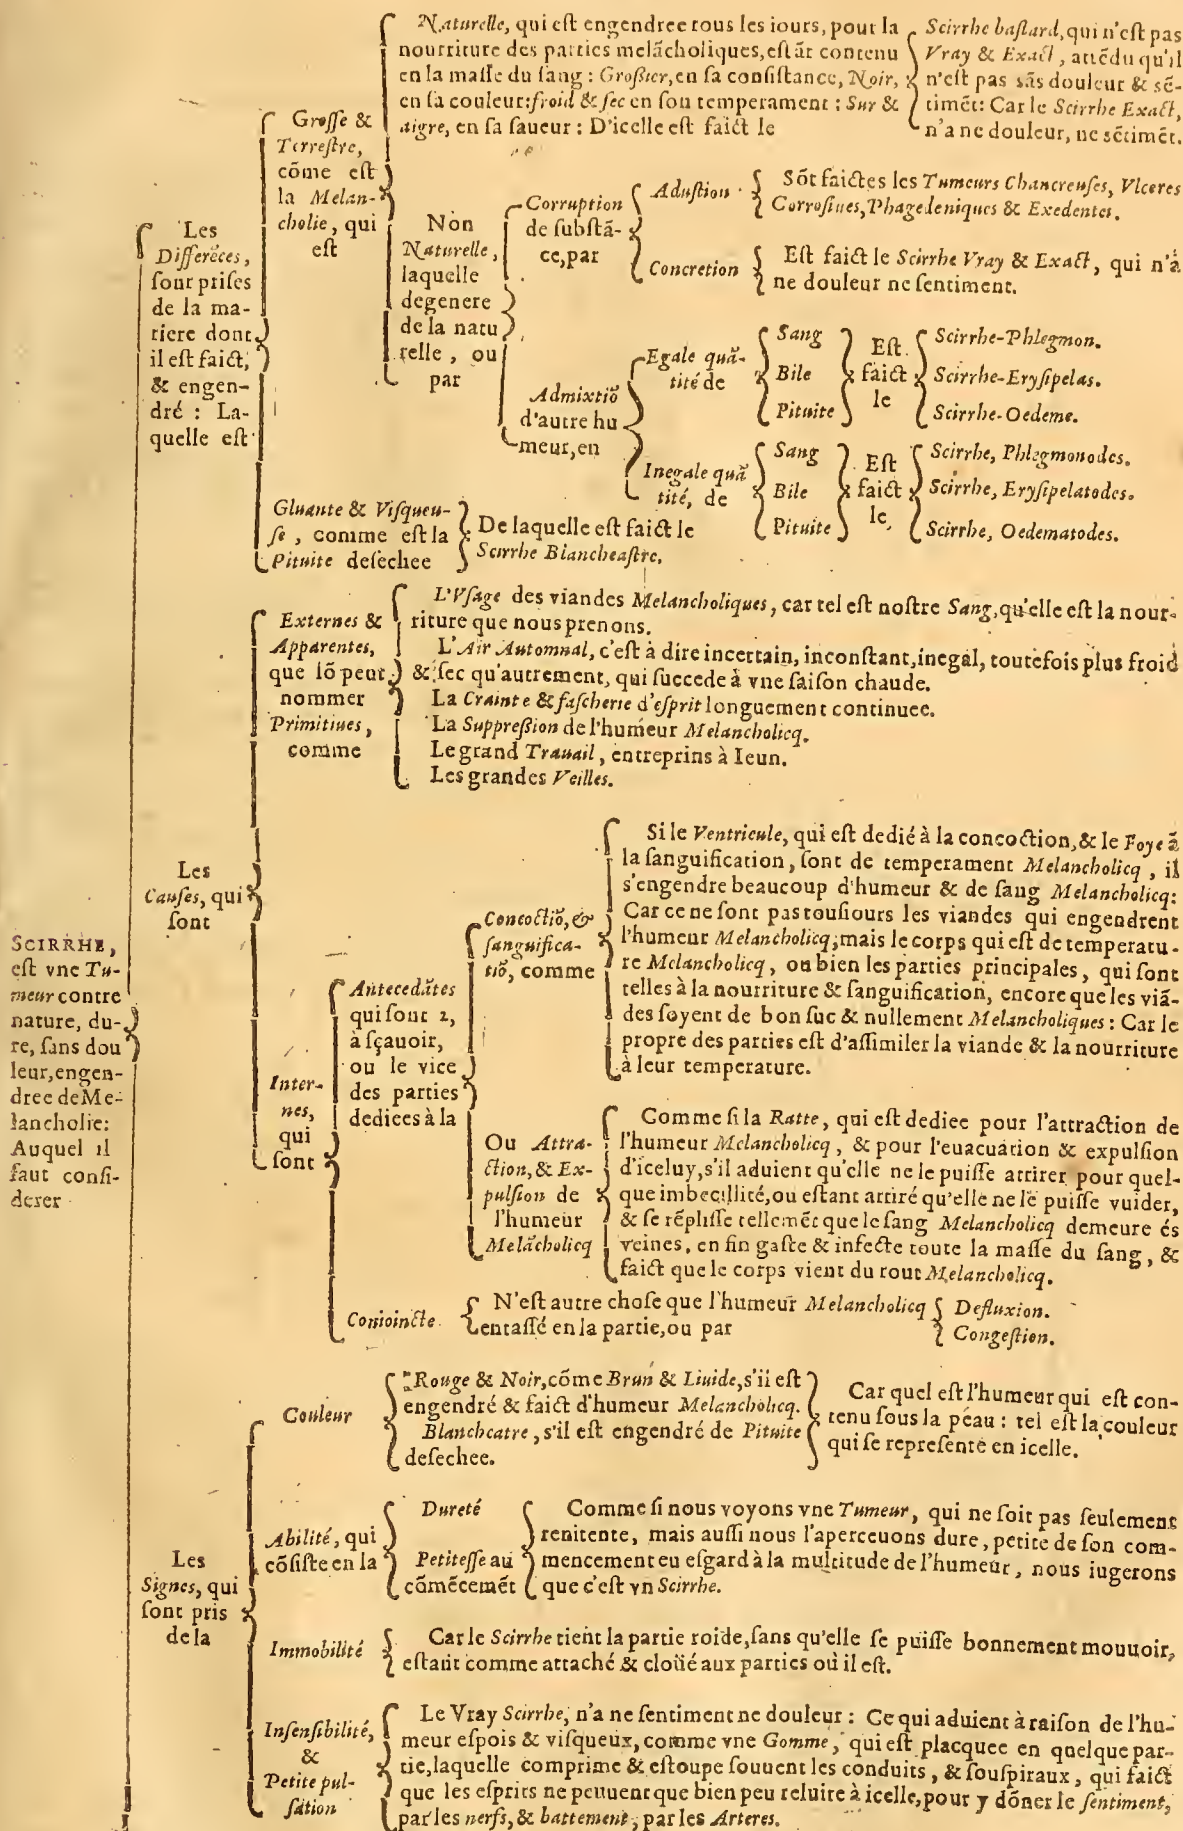 SCIRRHE,
eſt vne Tu-
meur contre
nature, du-
re, ſans dou
leur, engen-
dree de Me-
lancholie:
Auquel il
faut conſi-
derer
Les
Differẽces,
ſont priſes
de la ma-
tiere dont
il eſt faict,
& engen-
dré : La-
quelle eſt
Groſſe &
Terreſtre,
cõme eſt
la Melan-
cholie, qui
eſt
Naturelle, qui eſt engendree tous les iours, pour la
nourriture des parties melãcholiques, eſtãt contenu
en la maſſe du ſang : Groſsier, en ſa conſiſtance, Noir,
en ſa couleur: froid & ſec en ſon temperament : Sur &
aigre, en ſa ſaueur : D'icelle eſt faict le
Scirrhe baſtard, qui n'eſt pas
Vray & Exact, attẽdu qu'il
n'eſt pas sãs douleur & sẽ-
timẽt: Car le Scirrhe Exact,
n'a ne douleur, ne sẽtimẽt.
Non
Naturelle,
laquelle
degenere
de la natu
relle, ou
par
Corruption
de ſubſtã-
ce, par
Aduſtion
Sõt faictes les Tumeurs Chancreuſes, Vlceres
Corroſiues, Phagedeniques & Exedentes.
Concretion
Eſt faict le Scirrhe Vray & Exact, qui n'a
ne douleur ne ſentiment.
Admixtiõ
d'autre hu
meur, en
Egale quã-
tité de
Sang
Bile
Pituite
Eſt
faict
le
Scirrhe-Phlegmon.
Scirrhe-Eryſipelas.
Scirrhe-Oedeme.
Inegale quã
tité, de
Sang
Bile
Pituite
Eſt
faict
le,
Scirrhe, Phlegmonodes.
Scirrhe, Eryſipelatodes.
Scirrhe, Oedematodes.
Gluante & Viſqueu-
ſe, comme eſt la
Pituite deſechee
De laquelle eſt faict le
Scirrhe Blancheaſtre.
Les
Cauſes, qui
ſont
Externes &
Apparentes,
que lõ peut
nommer
Primitiues,
comme
L'Vſage des viandes Melancholiques, car tel eſt noſtre Sang, qu'elle eſt la nour-
riture que nous prenons.
L'Air Automnal, c'eſt à dire incertain, inconſtant, inegal, toutefois plus froid
& ſec qu'autrement, qui ſuccede à vne ſaiſon chaude.
La Crainte & faſcherie d'eſprit longuement continuee.
La Suppreſsion de l'humeur Melancholicq.
Le grand Trauail, entreprins à Ieun.
Les grandes Veilles.
Inter-
nes,
qui
ſont
Antecedãtes
qui ſont 2,
à ſçauoir,
ou le vice
des parties
dediees à la
Concoctiõ, &
ſanguifica-
tiõ, comme
Si le Ventricule, qui eſt dedié à la concoction, & le Foye à
la ſanguification, ſont de temperament Melancholicq, il
s'engendre beaucoup d'humeur & de ſang Melancholicq:
Car ce ne ſont pas touſiours les viandes qui engendrent
l'humeur Melancholicq; mais le corps qui eſt de temperatu-
re Melancholicq, ou bien les parties principales, qui ſont
telles à la nourriture & ſanguification, encore que les viã-
des ſoyent de bon ſuc & nullement Melancholiques : Car le
propre des parties eſt d'aſſimiler la viande & la nourriture
à leur temperature.
Ou Attra-
ction, & Ex-
pulſion de
l'humeur
Melãcholicq
Comme ſi la Ratte, qui eſt dediee pour l'attraction de
l'humeur Melancholicq, & pour l'euacuation & expulſion
d'iceluy, s'il aduient qu'elle ne le puiſſe attirer pour quel-
que imbecillité, ou eſtant attiré qu'elle ne le puiſſe vuider,
& ſe rẽpliſſe tellemẽt que le ſang Melancholicq demeure és
veines, en fin gaſte & infecte toute la maſſe du ſang, &
faict que le corps vient du tout Melancholicq.
Conioincte
N'eſt autre choſe que l'humeur Melancholicq
entaſſé en la partie, ou par
Defluxion.
Congeſtion.
Les
Signes, qui
ſont pris
de la
Couleur
Rouge & Noir, cõme Brun & Liuide, s'il eſt
engendré & faict d'humeur Melancholicq.
Blancheatre, s'il eſt engendré de Pituite
deſechee.
Car quel eſt l'humeur qui eſt con-
tenu ſous la peau : tel eſt la couleur
qui ſe repreſente en icelle.
Abilité, qui
cõſiſte en la
Dureté
Petiteſſe au
cõmẽcemẽt
Comme ſi nous voyons vne Tumeur, qui ne ſoit pas ſeulement
renitente, mais auſſi nous l'aperceuons dure, petite de ſon com-
mencement eu eſgard à la multitude de l'humeur, nous iugerons
que c'eſt vn Scirrhe.
Immobilité
Car le Scirrhe tient la partie roide, ſans qu'elle ſe puiſſe bonnement mouuoir,
eſtant comme attaché & cloüé aux parties où il eſt.
Inſenſibilité,
&
Petite pul-
ſation
Le Vray Scirrhe, n'a ne ſentiment ne douleur : Ce qui aduient à raiſon de l'hu-
meur eſpois & viſqueux, comme vne Gomme, qui eſt placquee en quelque par-
tie, laquelle comprime & eſtoupe ſouuent les conduits, & ſouſpiraux, qui faict
que les eſprits ne peuuent que bien peu reluire à icelle, pour y dõner le ſentiment,
par les nerfs, & battement, par les Arteres.